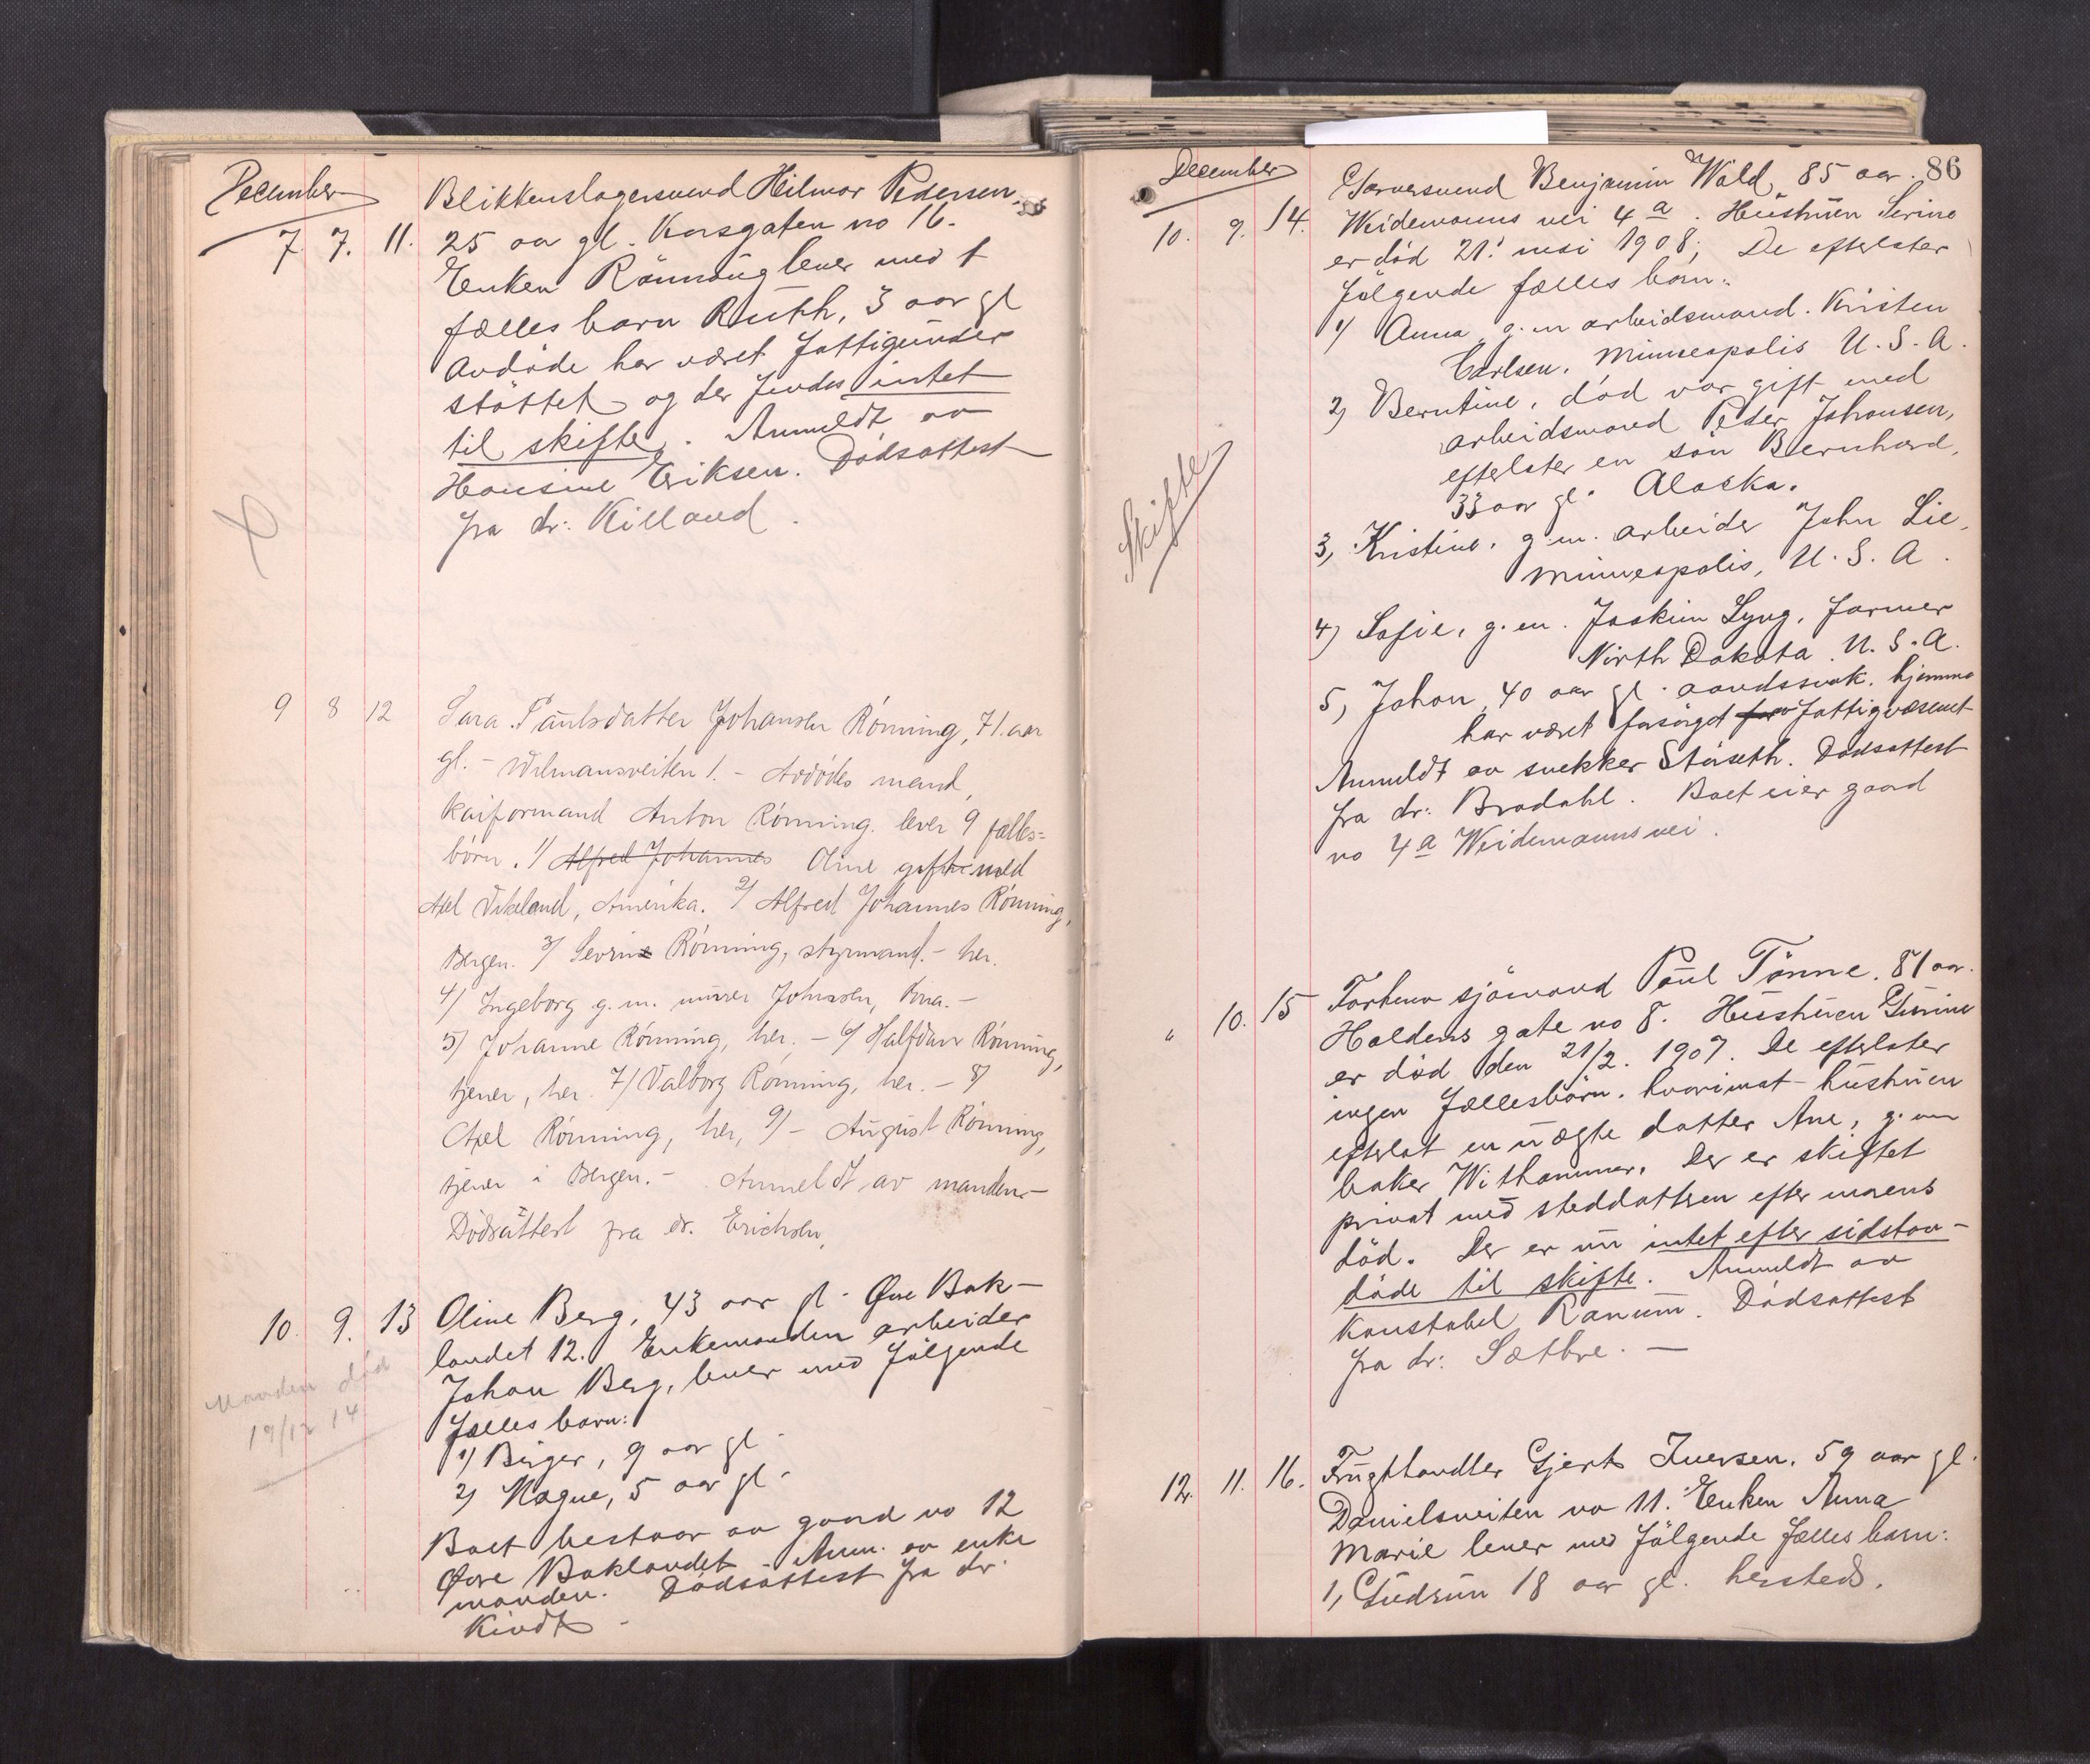 December
7. 7. 11.
Blikkenslagersvend Hilmar Pedersen.
25 aar gl. Korsgaten no 16.
Enken Rönnaug lever med 1
fælles barn Ruth, 3 aar gl
Avdöde har været fattigunder
støttet og der findes intet
til skifte. Anmeldt av
Hansine Eriksen. Dödsattest
fra dr: Killand.
9 8 12
Sara Paulsdatter Johansen Rönning, 71 aar
gl. - Wilmansveiten 1. - Avdödes mand,
kaiformand Anton Rönning lever 9 fælles-
börn. 1/ Alfred Johannes Oline gift med
Axel Vikeland, Amerika. 2/ Alfred Johannes Rönning,
Bergen. 3/ Sevrin Rönning, styrmand. - her.
4/ Ingeborg g. m. murer Johnsen,
5/ Johanne Rönning, her. - 6/ Halfdan Rönning,
tjener, her. 7/ Valborg Rönning, her. - 8/
Axel Rönning, her, 9/ - August Rönning,
tjener i Bergen. - Anmeldt av manden -
Dödsattest fra dr. Erichsen,
10. 9. 13
Oline Berg, 43 aar gl. Øvre Bak-
landet 12. Enkemanden arbeider
Johan Berg, lever med följende
fælles barn:
Manden död
19/12 14
1) Birger, 9 aar gl.
2) Magne, 5 aar gl.
Boet bestaar av gaard no 12
Øvre Baklandet. Anm. av enke
manden. Dödsattest fra dr.
Kindt.
86
December
10. 9. 14.
Garversvend Benjamin Wold, 85 aar.
Weidemanns vei 4 a. Hustruen Serine
er död 21. mai 1908; De efterlater
følgende fælles barn:
1) Anna, g. m arbeidsmand. Kristen
Carlsen, Minneapolis U. S. A.
2) Berntine, død var gift med
arbeidsmand Peder Johansen,
efterlater en sön Bernhard,
33 aar gl. Alaska.
Skifte
3, Kristine, g. m. arbeider John Lie,
Minneapolis, U. S. A.
4) Sofie, g. m. Joakim Lyng, farmer
North Dakota. U. S. A.
5, Johan, 40 aar gl. aandssvak. hjemme
har været forsörget av fattigvæsenet
Anmeldt av snekker Störseth. Dödsattest
fra dr: Bradahl. Boet eier gaard
no 4 a Weidemannsvei.
" 10. 15
Forhenv sjömand Paul Tönne, 81 aar.
Holdens gate no 8. Hustruen Gurine
er död den 21/2. 1907. De efterlater
ingen fællesbörn, hvorimot hustruen
efterlot en uægte datter Ane, g. m
baker Withammer. Der er skiftet
privat med steddatteren efter morens
död. Der er nu intet efter sidstav-
döde til skifte. Anmeldt av
konstabel Ranum. Dödsattest
fra dr: Sæthre. -
12. 11. 16.
Frugthandler Gjert Iversen, 59 aar gl.
Danielsveiten no 11. Enken Anna
Marie lever med følgende fælles barn:
1, Gudrun 18 aar gl. hersteds.